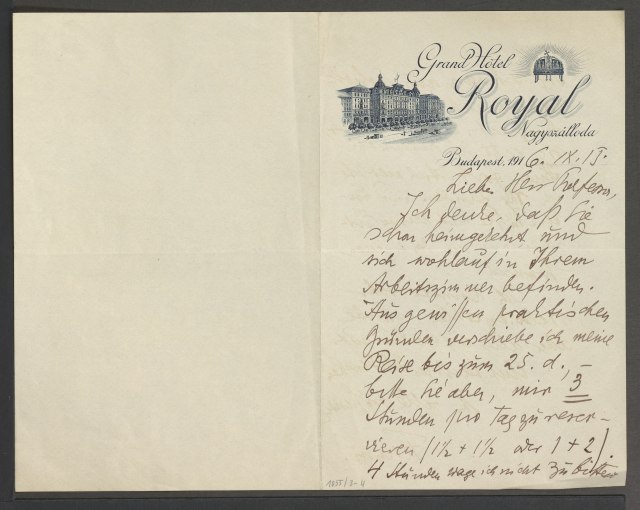 Grand Hôtel
Royal
Nagyszálloda
Budapest, 1916. IX. 15.
Lieber Herr Professor,
Ich denke, daß Sie
schon heimgekehrt und
sich wohlauf in Ihrem
Arbeitszimmer befinden.
Aus gewissen praktischen
Gründen verschiebe ich meine
Reise bis zum 25. d., –
bitte Sie aber, mir 3
Stunden pro Tag zu reser-
vieren (1½ + 1½ oder 1 + 2).
4 Stunden wage ich nicht zu bitten